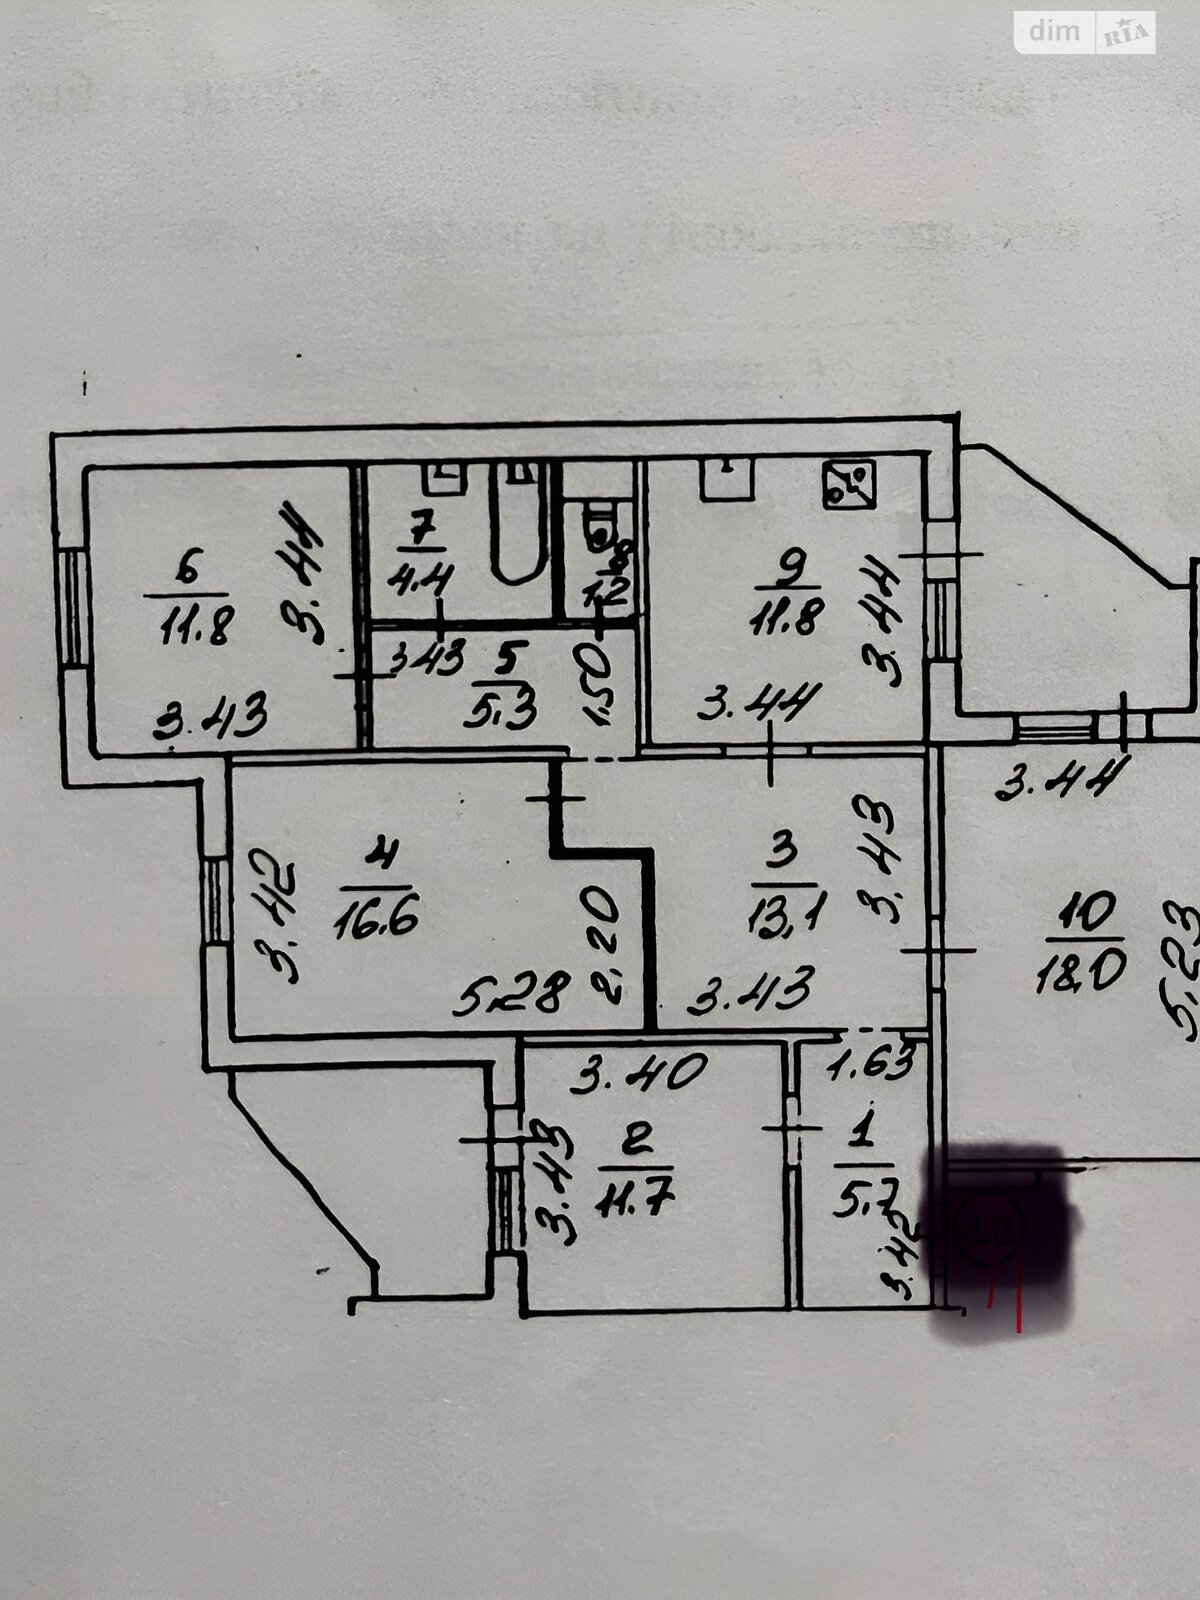 dim RIA
6
11.8
3.44
3.43
7
4.4
8
1.2
3.43
5
5.3
1.50
9
11.8
3.44
3.44
3.44
4
16.6
3.42
5.28
2.20
3
13,1
3.43
3.43
10
18.0
5,23
3.40
2
11.7
3.43
1.63
1
5.7
3.42